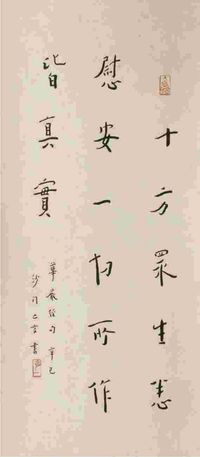 十方眾生悉
慰安一切所作
皆真實
華嚴經句辛巳
沙門一音書